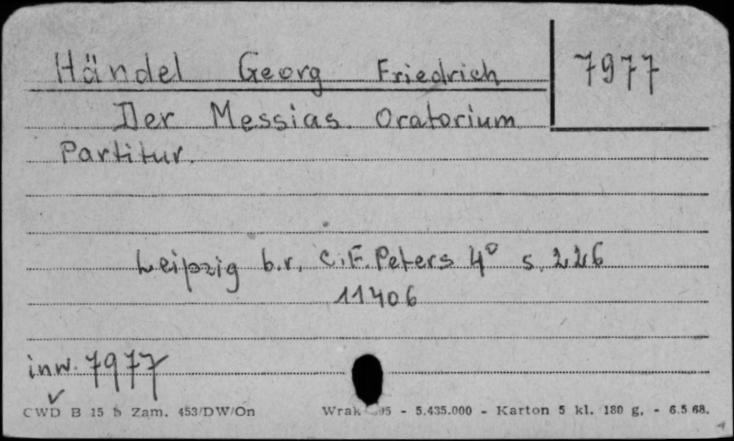 Händel Georg Friedrich 7977
Der Messias. Oratorium
Partitur.
Leipzig b.r. C.F. Peters 4° s. 226
11406
inw. 7977
CWD B 15 b Zam. 453/DW/On Wrak 95 - 5.435.000 - Karton 5 kl. 180 g, - 6.5 68.